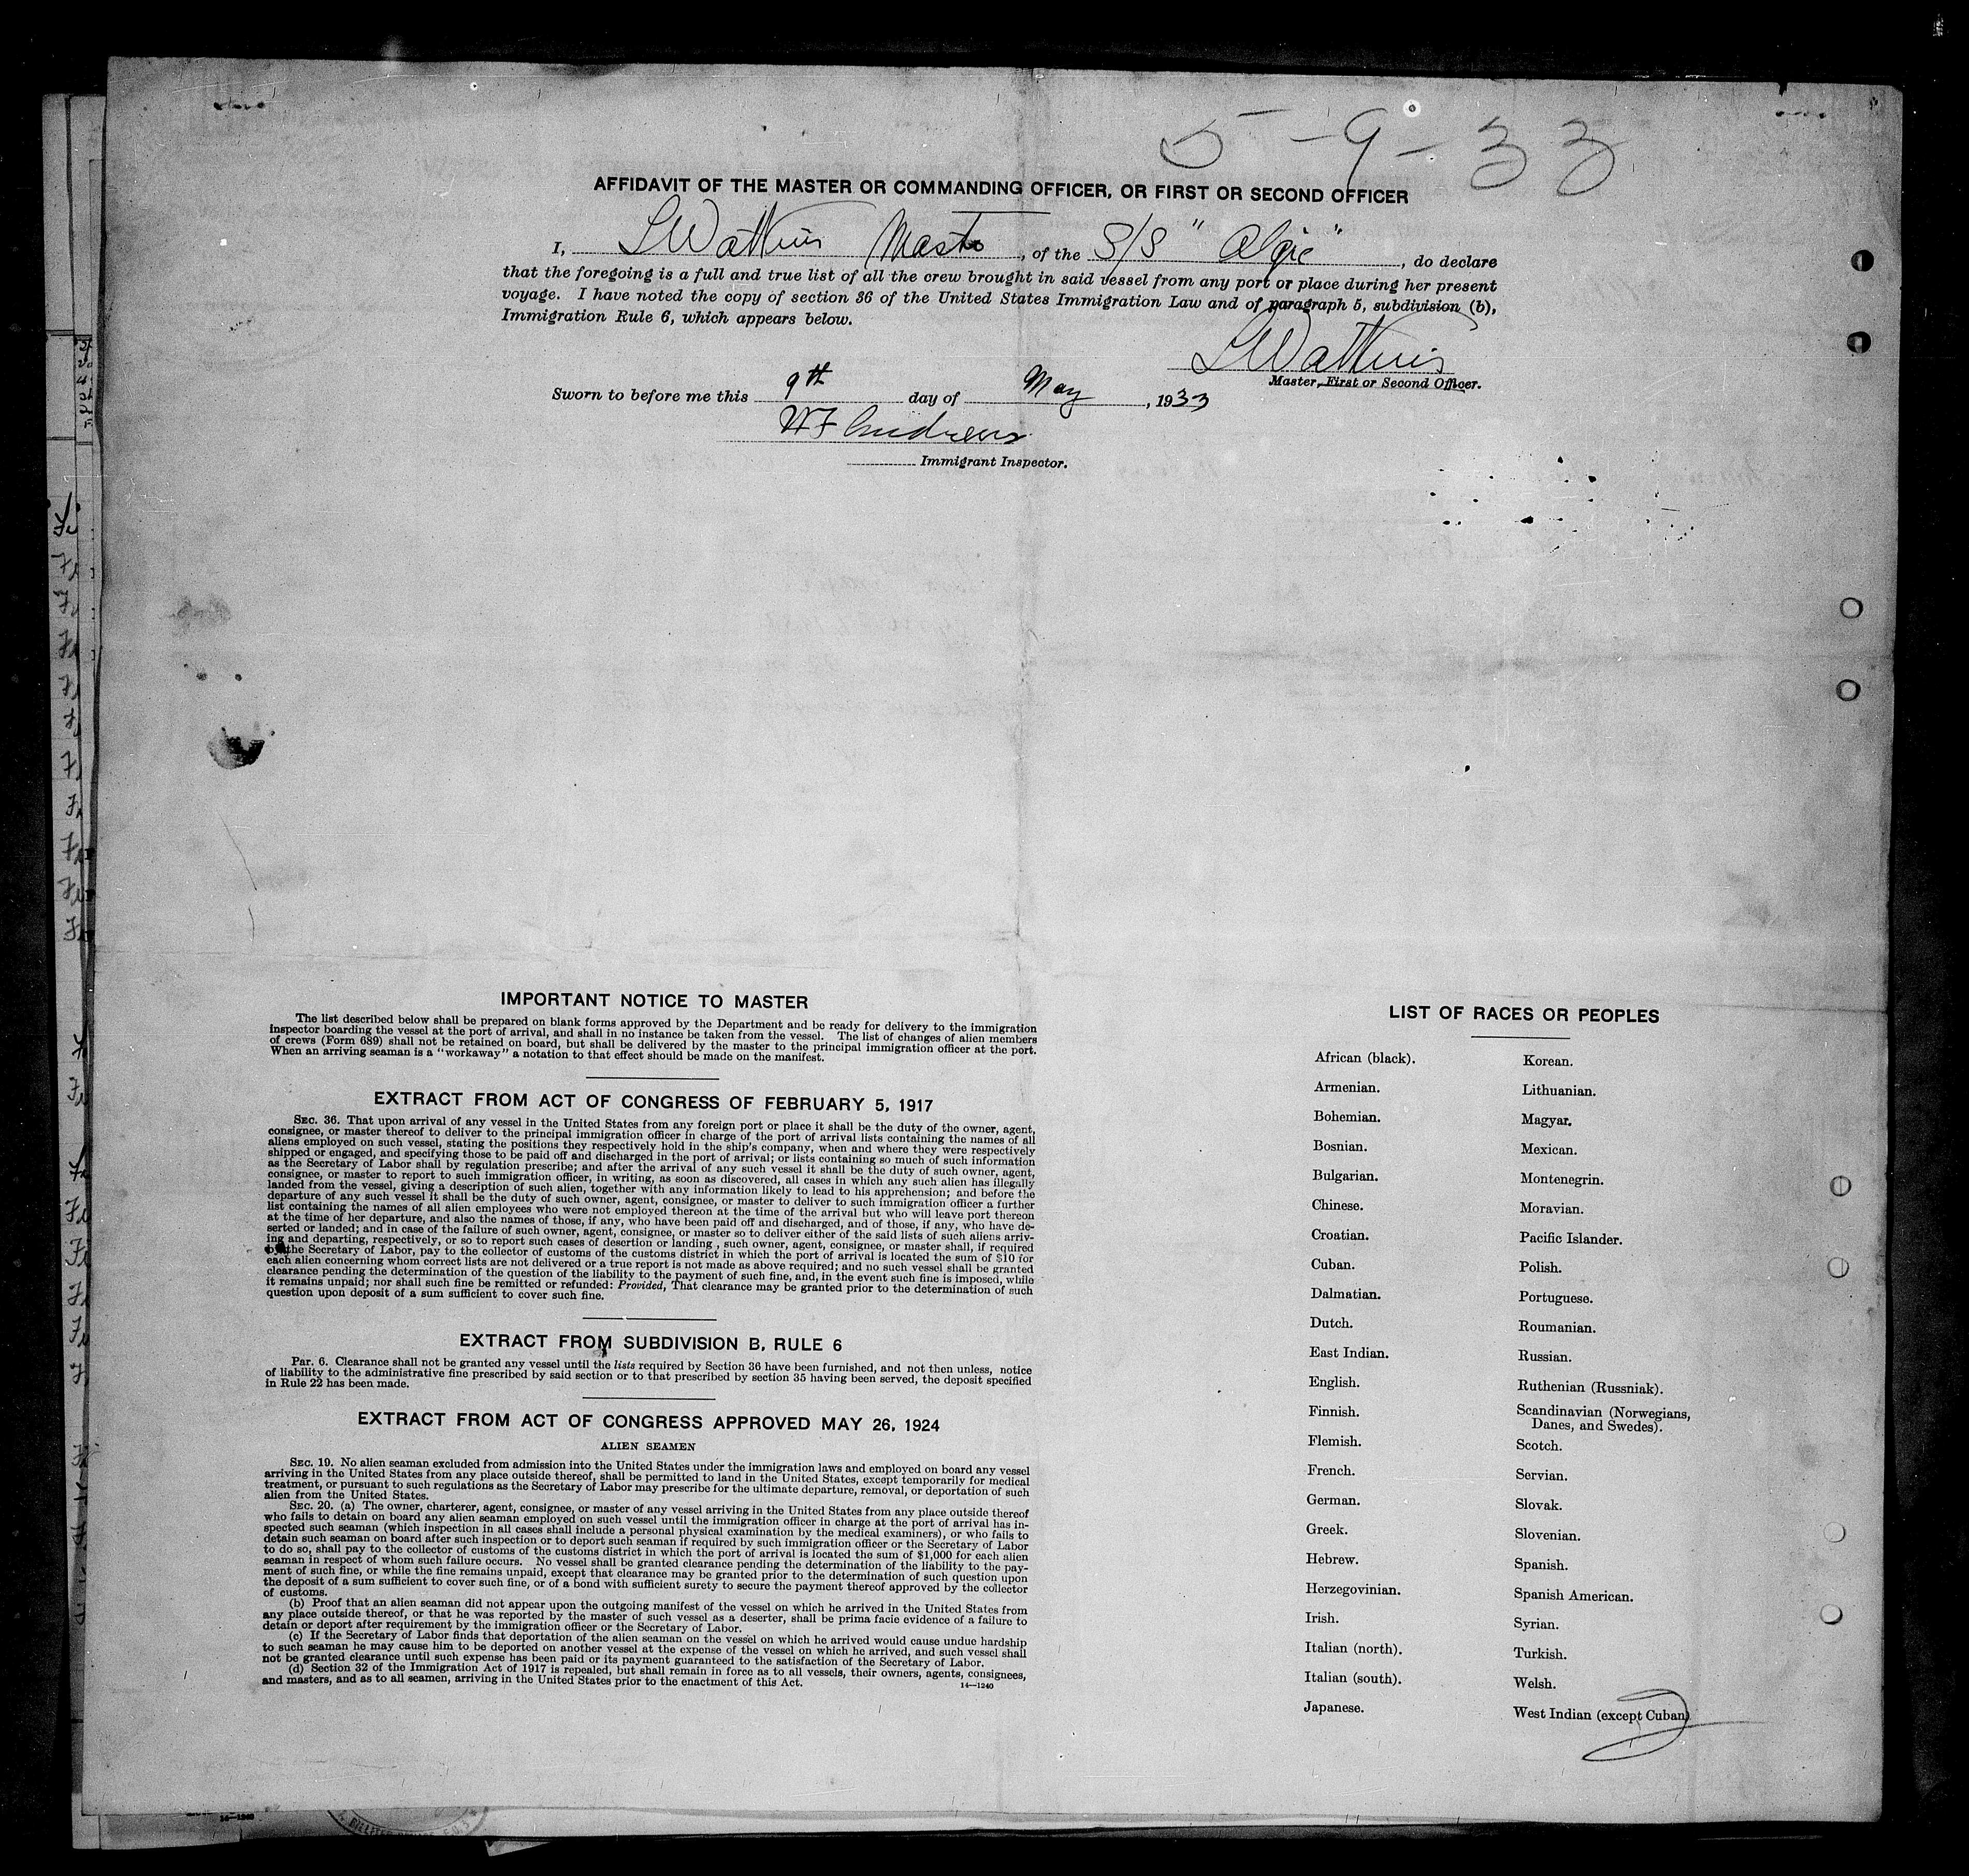 5-9-33
AFFIDAVIT OF THE MASTER OR COMMANDING OFFICER, OR FIRST OR SECOND OFFICER
I, LWatkins Master, of the S/S "Algic", do declare
that the foregoing is a full and true list of all the crew brought in said vessel from any port or place during her present
voyage. I have noted the copy of section 36 of the United States Immigration Law and of paragraph 5, subdivision (b),
Immigration Rule 6, which appears below.
LWatkins
Master, First or Second Officer.
Sworn to before me this 9th day of May, 1933
WF Andrews
Immigrant Inspector.
IMPORTANT NOTICE TO MASTER
The list described below shall be prepared on blank forms approved by the Department and be ready for delivery to the immigration
inspector boarding the vessel at the port of arrival, and shall in no instance be taken from the vessel. The list of changes of alien members
of crews (Form 689) shall not be retained on board, but shall be delivered by the master to the principal immigration officer at the port.
When an arriving seaman is a "workaway" a notation to that effect should be made on the manifest.
EXTRACT FROM ACT OF CONGRESS OF FEBRUARY 5, 1917
SEC. 36. That upon arrival of any vessel in the United States from any foreign port or place it shall be the duty of the owner, agent,
consignee, or master thereof to deliver to the principal immigration officer in charge of the port of arrival lists containing the names of all
aliens employed on such vessel, stating the positions they respectively hold in the ship's company, when and where they were respectively
shipped or engaged, and specifying those to be paid off and discharged in the port of arrival; or lists containing so much of such information
as the Secretary of Labor shall by regulation prescribe; and after the arrival of any such vessel it shall be the duty of such owner, agent,
consignee, or master to report to such immigration officer, in writing, as soon as discovered, all cases in which any such alien has illegally
landed from the vessel, giving a description of such alien, together with any information likely to lead to his apprehension; and before the
departure of any such vessel it shall be the duty of such owner, agent, consignee, or master to deliver to such immigration officer a further
list containing the names of all alien employees who were not employed thereon at the time of the arrival but who will leave port thereon
at the time of her departure, and also the names of those, if any, who have been paid off and discharged, and of those, if any, who have de-
serted or landed; and in case of the failure of such owner, agent, consignee, or master so to deliver either of the said lists of such aliens arriv-
ing and departing, respectively, or so to report such cases of desertion or landing, such owner, agent, consignee, or master shall, if required
by the Secretary of Labor, pay to the collector of customs of the customs district in which the port of arrival is located the sum of $10 for
each alien concerning whom correct lists are not delivered or a true report is not made as above required; and no such vessel shall be granted
clearance pending the determination of the question of the liability to the payment of such fine, and, in the event such fine is imposed, while
it remains unpaid; nor shall such fine be remitted or refunded: Provided, That clearance may be granted prior to the determination of such
question upon deposit of a sum sufficient to cover such fine.
EXTRACT FROM SUBDIVISION B, RULE 6
Par. 6. Clearance shall not be granted any vessel until the lists required by Section 36 have been furnished, and not then unless, notice
of liability to the administrative fine prescribed by said section or to that prescribed by section 35 having been served, the deposit specified
in Rule 22 has been made.
EXTRACT FROM ACT OF CONGRESS APPROVED MAY 26, 1924
ALIEN SEAMEN
SEC. 19. No alien seaman excluded from admission into the United States under the immigration laws and employed on board any vessel
arriving in the United States from any place outside thereof, shall be permitted to land in the United States, except temporarily for medical
treatment, or pursuant to such regulations as the Secretary of Labor may prescribe for the ultimate departure, removal, or deportation of such
alien from the United States.
SEC. 20. (a) The owner, charterer, agent, consignee, or master of any vessel arriving in the United States from any place outside thereof
who fails to detain on board any alien seaman employed on such vessel until the immigration officer in charge at the port of arrival has in-
spected such seaman (which inspection in all cases shall include a personal physical examination by the medical examiners), or who fails to
detain such seaman on board after such inspection or to deport such seaman if required by such immigration officer or the Secretary of Labor
to do so, shall pay to the collector of customs of the customs district in which the port of arrival is located the sum of $1,000 for each alien
seaman in respect of whom such failure occurs. No vessel shall be granted clearance pending the determination of the liability to the pay-
ment of such fine, or while the fine remains unpaid, except that clearance may be granted prior to the determination of such question upon
the deposit of a sum sufficient to cover such fine, or of a bond with sufficient surety to secure the payment thereof approved by the collector
of customs.
(b) Proof that an alien seaman did not appear upon the outgoing manifest of the vessel on which he arrived in the United States from
any place outside thereof, or that he was reported by the master of such vessel as a deserter, shall be prima facie evidence of a failure to
detain or deport after requirement by the immigration officer or the Secretary of Labor.
(c) If the Secretary of Labor finds that deportation of the alien seaman on the vessel on which he arrived would cause undue hardship
to such seaman he may cause him to be deported on another vessel at the expense of the vessel on which he arrived, and such vessel shall
not be granted clearance until such expense has been paid or its payment guaranteed to the satisfaction of the Secretary of Labor.
(d) Section 32 of the Immigration Act of 1917 is repealed, but shall remain in force as to all vessels, their owners, agents, consignees,
and masters, and as to all seamen, arriving in the United States prior to the enactment of this Act.
14—1240
LIST OF RACES OR PEOPLES
African (black).
Armenian.
Bohemian.
Bosnian.
Bulgarian.
Chinese.
Croatian.
Cuban.
Dalmatian.
Dutch.
East Indian.
English.
Finnish.
Flemish.
French.
German.
Greek.
Hebrew.
Herzegovinian.
Irish.
Italian (north).
Italian (south).
Japanese.
Korean.
Lithuanian.
Magyar.
Mexican.
Montenegrin.
Moravian.
Pacific Islander.
Polish.
Portuguese.
Roumanian.
Russian.
Ruthenian (Russniak).
Scandinavian (Norwegians,
Danes, and Swedes).
Scotch.
Servian.
Slovak.
Slovenian.
Spanish.
Spanish American.
Syrian.
Turkish.
Welsh.
West Indian (except Cuban)